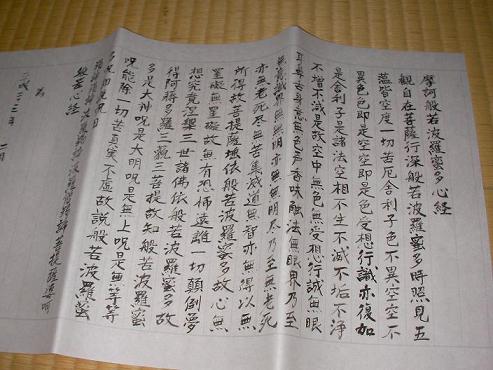 摩訶般若波羅蜜多心経
観自在菩薩行深般若波羅蜜多時照見五
蘊皆空度一切苦厄舎利子色不異空空不
異色色即是空空即是色受想行識亦復如
是舎利子是諸法空相不生不滅不垢不浄
不増不減是故空中無色無受想行識無眼
耳鼻舌身意無色声香味触法無眼界乃至
無意識界無無明亦無無明尽乃至無老死
亦無老死尽無苦集滅道無智亦無得以無
所得故菩提薩埵依般若波羅蜜多故心無
罣礙無罣礙故無有恐怖遠離一切顛倒夢
想究竟涅槃三世諸佛依般若波羅蜜多故
得阿耨多羅三藐三菩提故知般若波羅蜜
多是大神呪是大明呪是無上呪是無等等
呪能除一切苦真実不虚故説般若波羅蜜
多呪即説呪曰
羯諦羯諦波羅羯諦波羅僧羯諦菩提薩婆訶
般若心経
為
年 二月